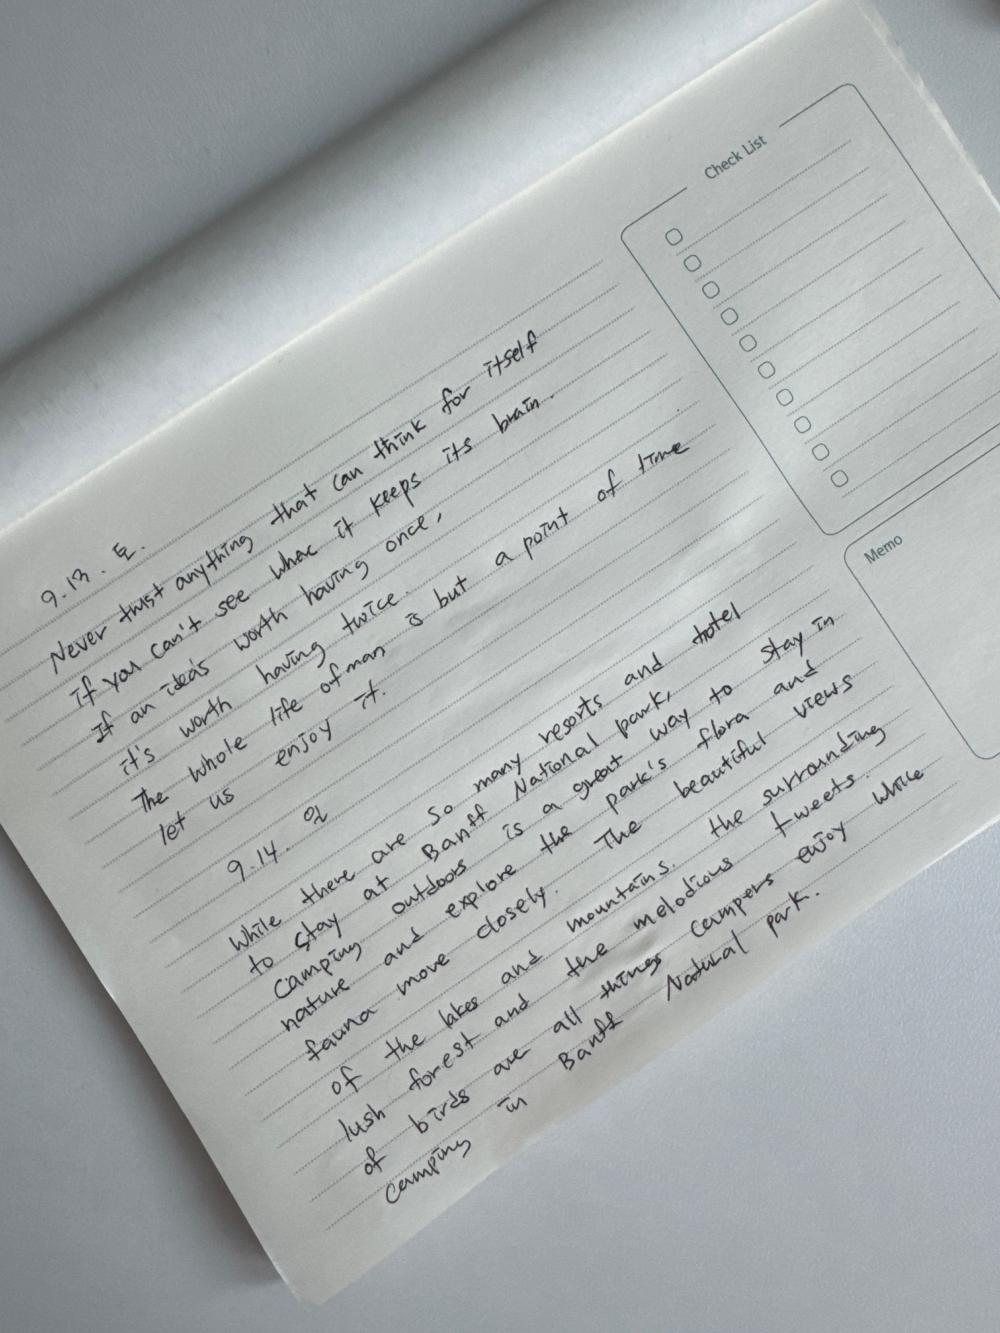 9.13. 토.
Never trust anything that can think for itself
if you can't see whac it keeps its brain.
If an idea's worth having once,
it's worth having twice.
The whole life of man is but a point of time
let us enjoy it.
9.14. 일
While there are so many resorts and hotel
to stay at Banff National park,
Camping outdoors is a great way to stay in
nature and explore the park's flora and
fauna move closely. The beautiful views
of the lakes and mountains. the surrounding
lush forest and the melodious tweets.
of birds are all things campers enjoy while
camping in Banff Natural park.
Check List
Memo